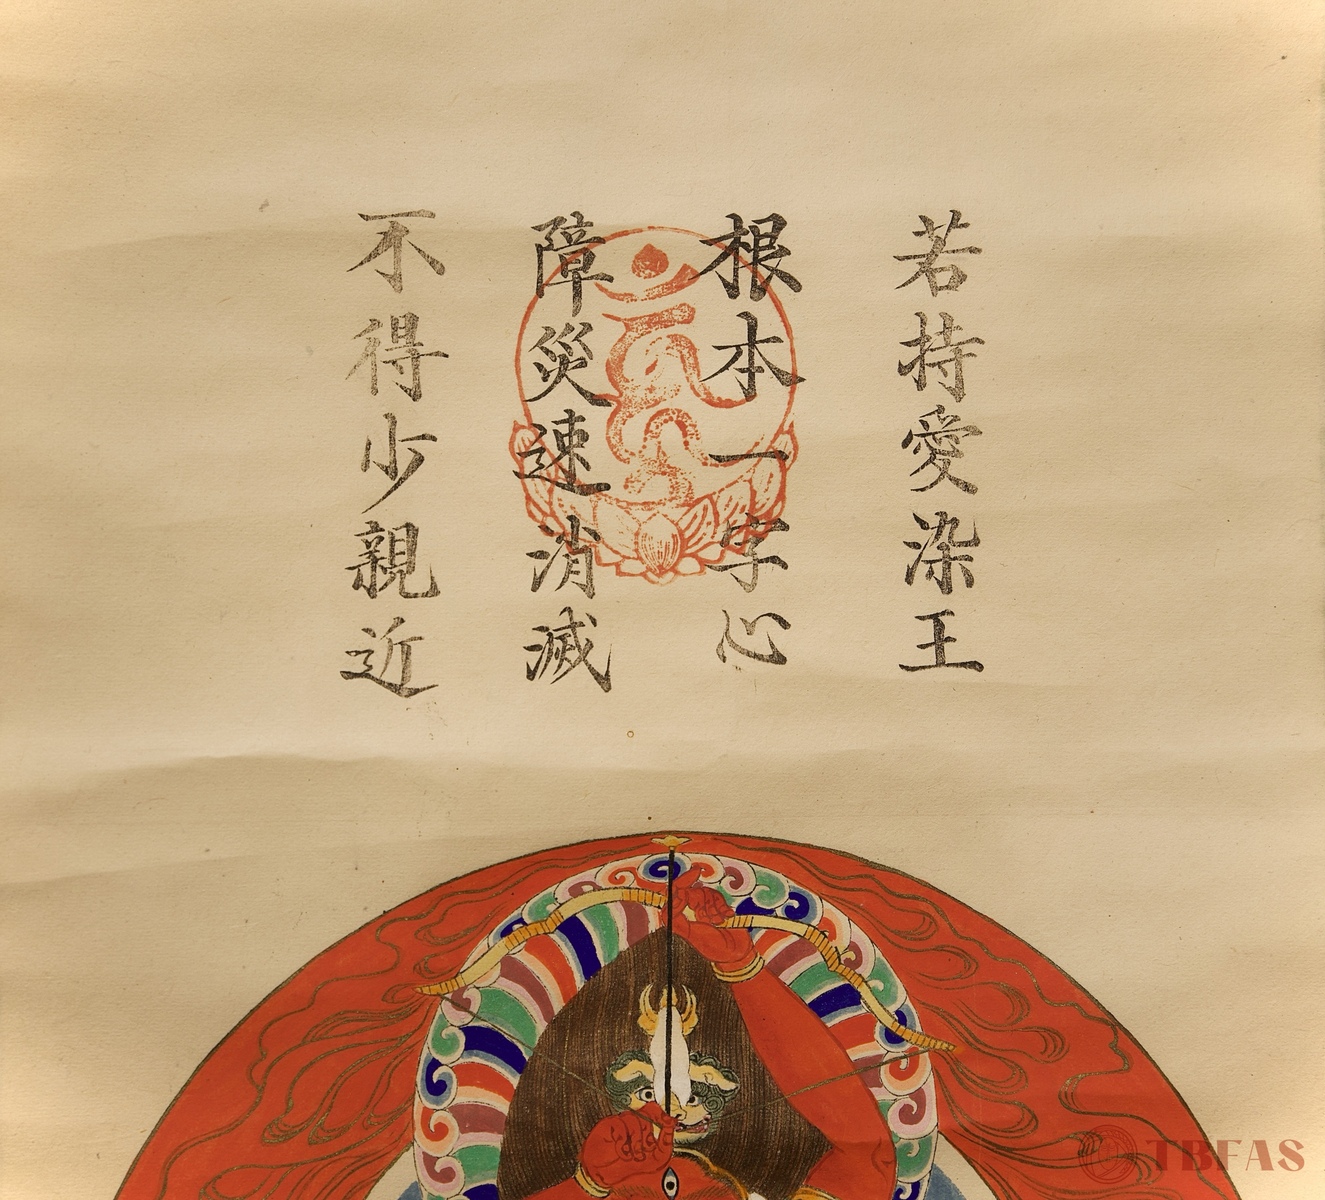 若持愛染王
根本一字心
障災速消滅
不得少親近
TBFAS